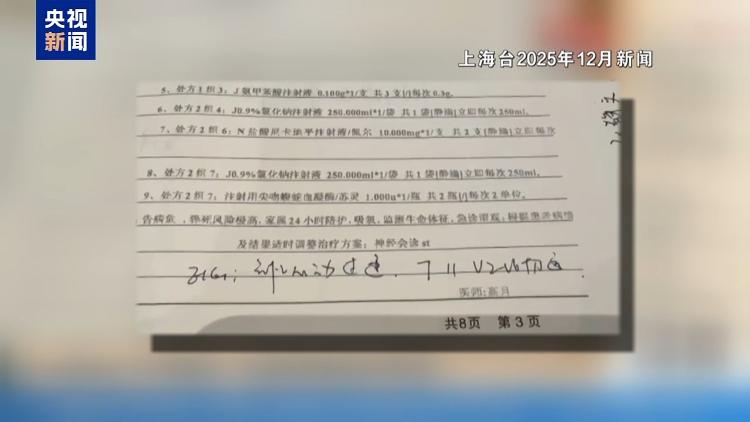 央视新闻
上海台2025年12月新闻
5、处方1组3：J氨甲苯酸注射液 0.100g*1/支 共3支[/]每次0.3g。
6、处方2组4：J0.9%氯化钠注射液 250.000ml*1/袋 共1袋[静滴]立即每次250ml。
7、处方2组6：N盐酸尼卡地平注射液/佩尔 10.000mg*1/支 共2支[静滴]立即每次
8、处方2组7：J0.9%氯化钠注射液 250.000ml*1/袋 共1袋[静滴]立即每次250ml。
9、处方2组7：注射用尖吻蝮蛇血凝酶/苏灵 1.000u*1/瓶 共2瓶[/]每次2单位。
告病危，猝死风险极高，家属24小时陪护，吸氧，监测生命体征，急诊留观；根据患者病情
及结果适时调整治疗方案；神经会诊st
医师：高月
共8页 第3页